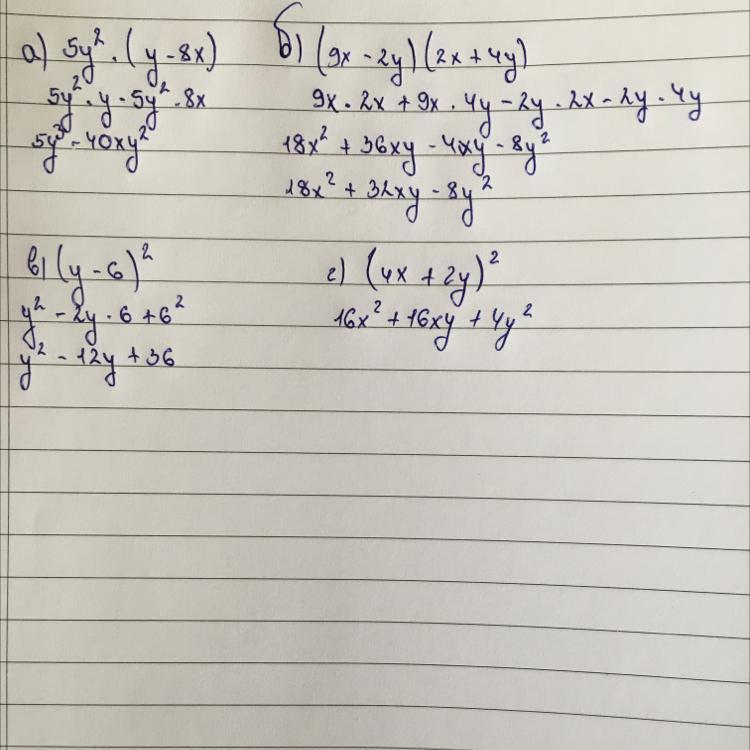 а) 5y² · (y - 8x)
5y² · y - 5y² · 8x
5y³ - 40xy²
б) (9x - 2y)(2x + 4y)
9x · 2x + 9x · 4y - 2y · 2x - 2y · 4y
18x² + 36xy - 4xy - 8y²
18x² + 32xy - 8y²
в) (y - 6)²
y² - 2y · 6 + 6²
y² - 12y + 36
г) (4x + 2y)²
16x² + 16xy + 4y²